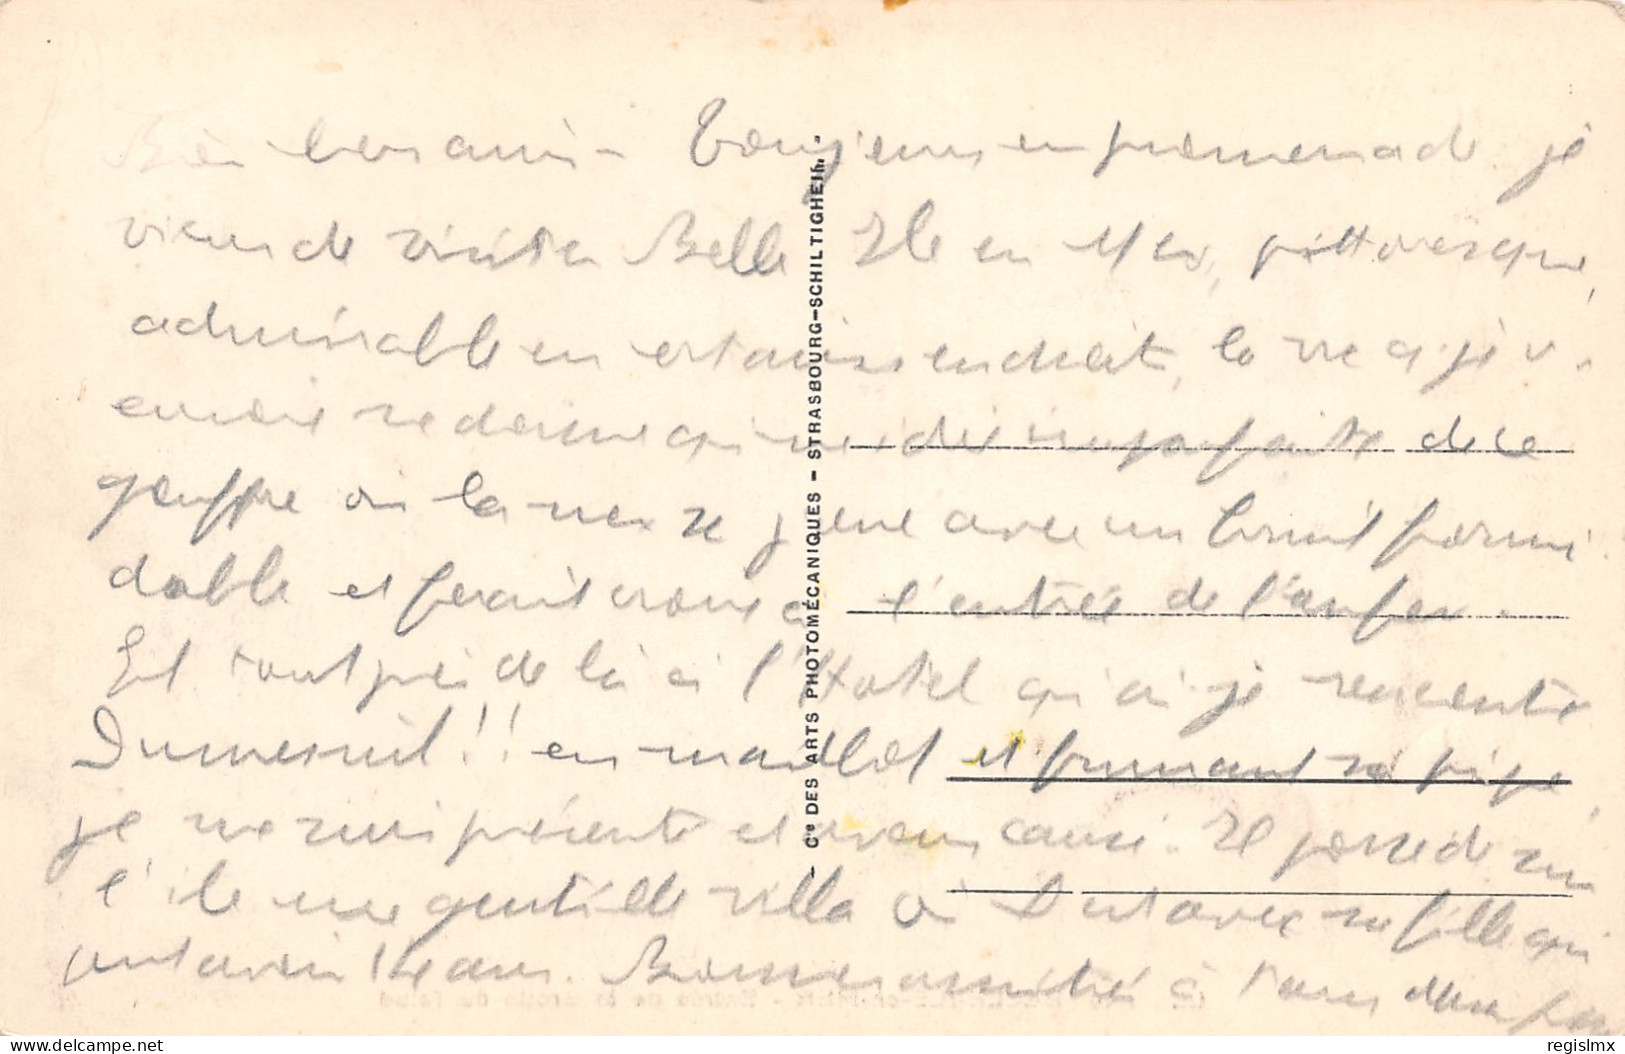 Bien chers amis - Toujours en promenade je
viens de visiter Belle Ile en Mer, pittoresque,
admirable en certains endroits, la vue q. je v.
envoie ne donne qu'une idée imparfaite de ce
gouffre où la mer se joue avec un bruit formi-
dable et ferait croire à l'entrée de l'enfer.
Et tout près de là à l'Hotel qui ai-je rencontré
Dumesnil!! en maillot et fumant sa pipe,
je me suis présenté et avons causé. Il possède sur
l'île une gentille villa où il est avec sa fille qui
peut avoir 12 ans. Bonnes amitiés à tous deux
Cie DES ARTS PHOTOMÉCANIQUES - STRASBOURG-SCHILTIGHEIM.
regislmx
delcampe.net